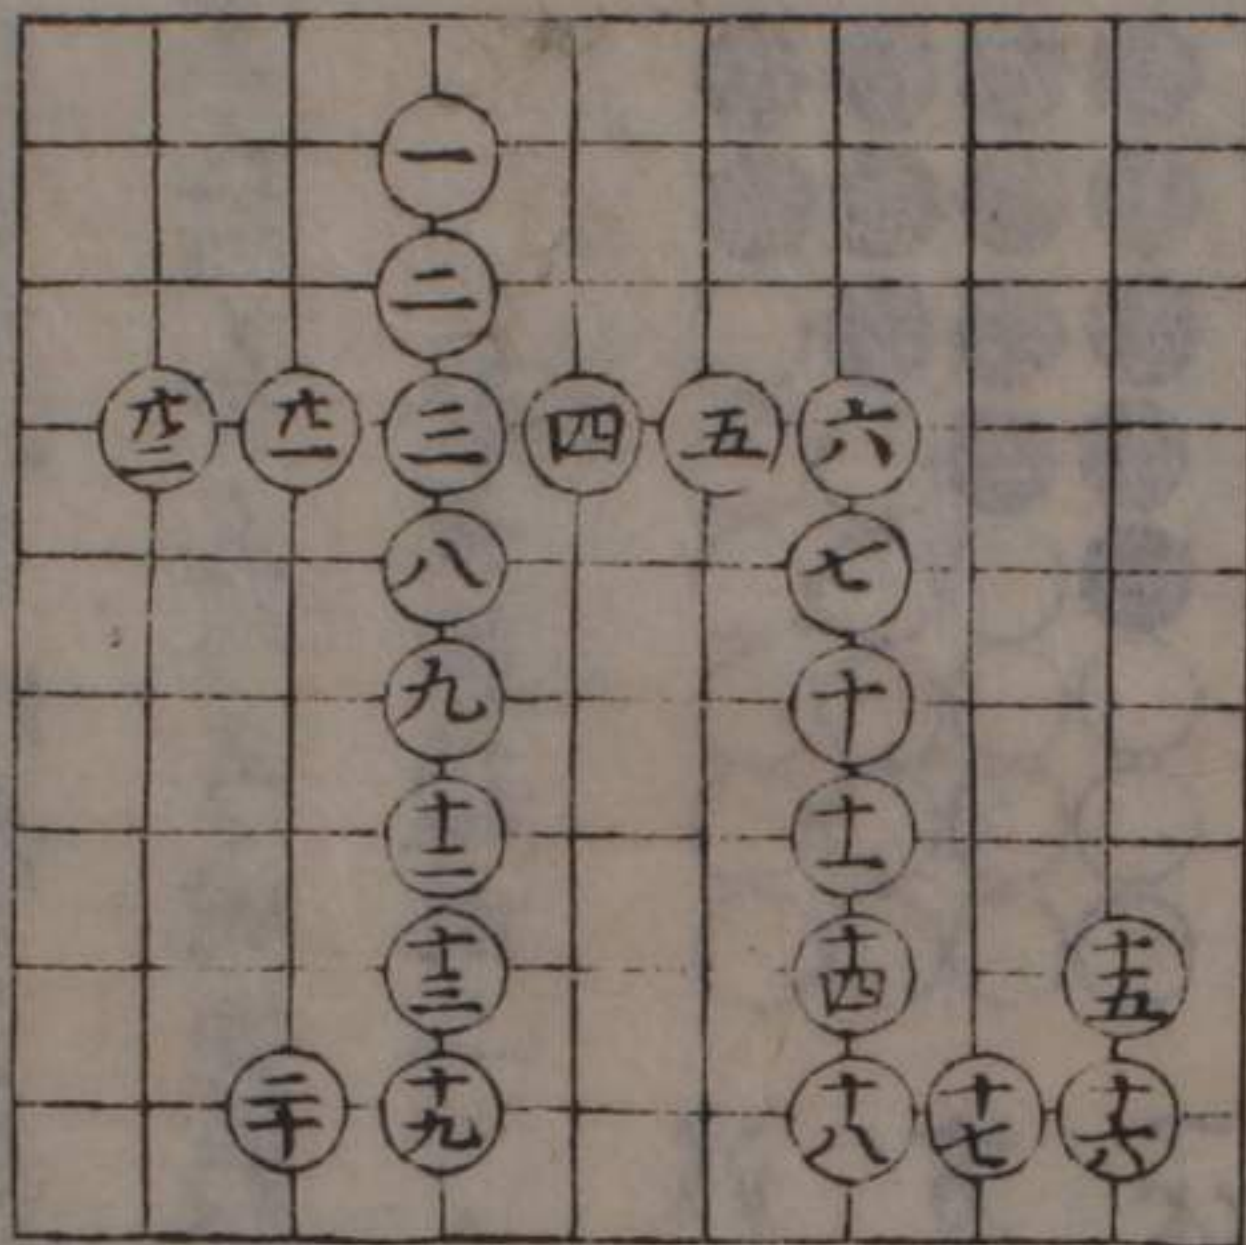 一
二
廿二 廿一 三 四 五 六
八 七
九 十
十二 十一
十三 十四 十五
二十 十九 十八 十七 十六